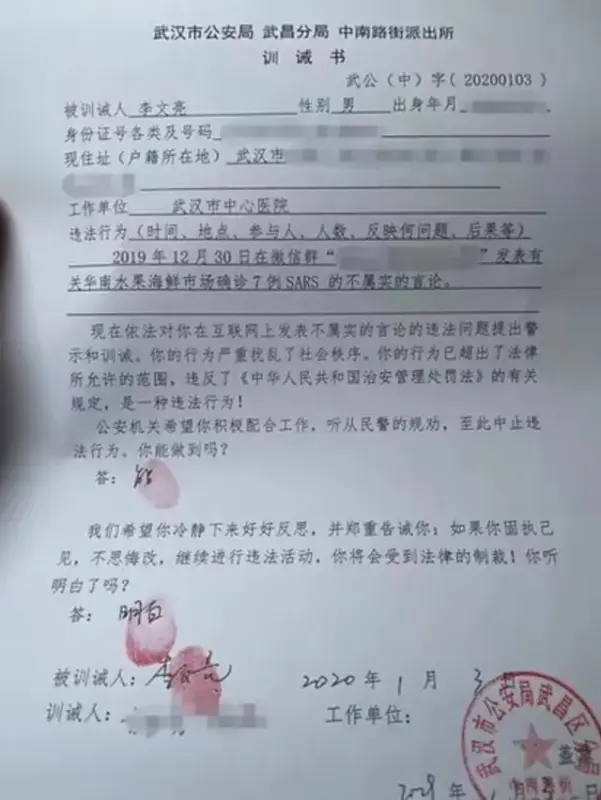 武汉市公安局 武昌分局 中南路街派出所
训 诫 书
武公（中）字（20200103）
被训诫人 李文亮 性别 男 出身年月
身份证号各类及号码
现住址（户籍所在地）武汉市
工作单位 武汉市中心医院
违法行为（时间、地点、参与人、人数、反映何问题、后果等）
2019年12月30日在微信群“ ”发表有
关华南水果海鲜市场确诊7例SARS的不属实的言论。
现在依法对你在互联网上发表不属实的言论的违法问题提出警
示和训诫。你的行为严重扰乱了社会秩序。你的行为已超出了法律
所允许的范围，违反了《中华人民共和国治安管理处罚法》的有关
规定，是一种违法行为！
公安机关希望你积极配合工作，听从民警的规劝，至此中止违
法行为。你能做到吗？
答：能
我们希望你冷静下来好好反思，并郑重告诫你：如果你固执己
见，不思悔改，继续进行违法活动，你将会受到法律的制裁！你听
明白了吗？
答：明白
被训诫人：李文亮 2020年1月3日
训诫人： 工作单位：
武汉市公安局武昌区